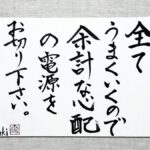 全て
うまくいくので
余計な心配
の電源を
お切り下さい。
ki